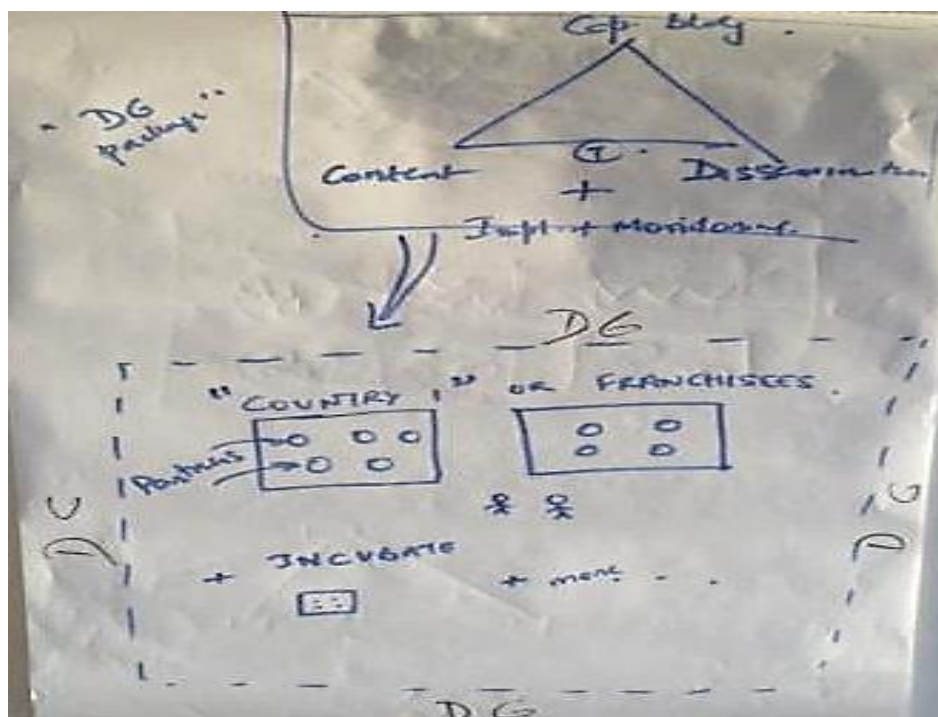 Cap bldg.
"DG
package"
T.
Content Dissemination
+
Impl + Monitoring
DG
"COUNTRY 1" OR FRANCHISEES.
Partners
DG DG
+ INCUBATE + more - - .
DG